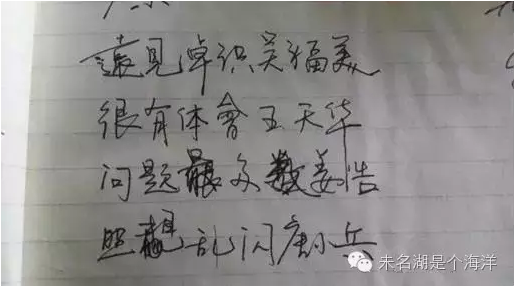 遠見卓识吴福美
很有体會王天华
问题最多数姜浩
照相乱闪唐小兵
未名湖是个海洋